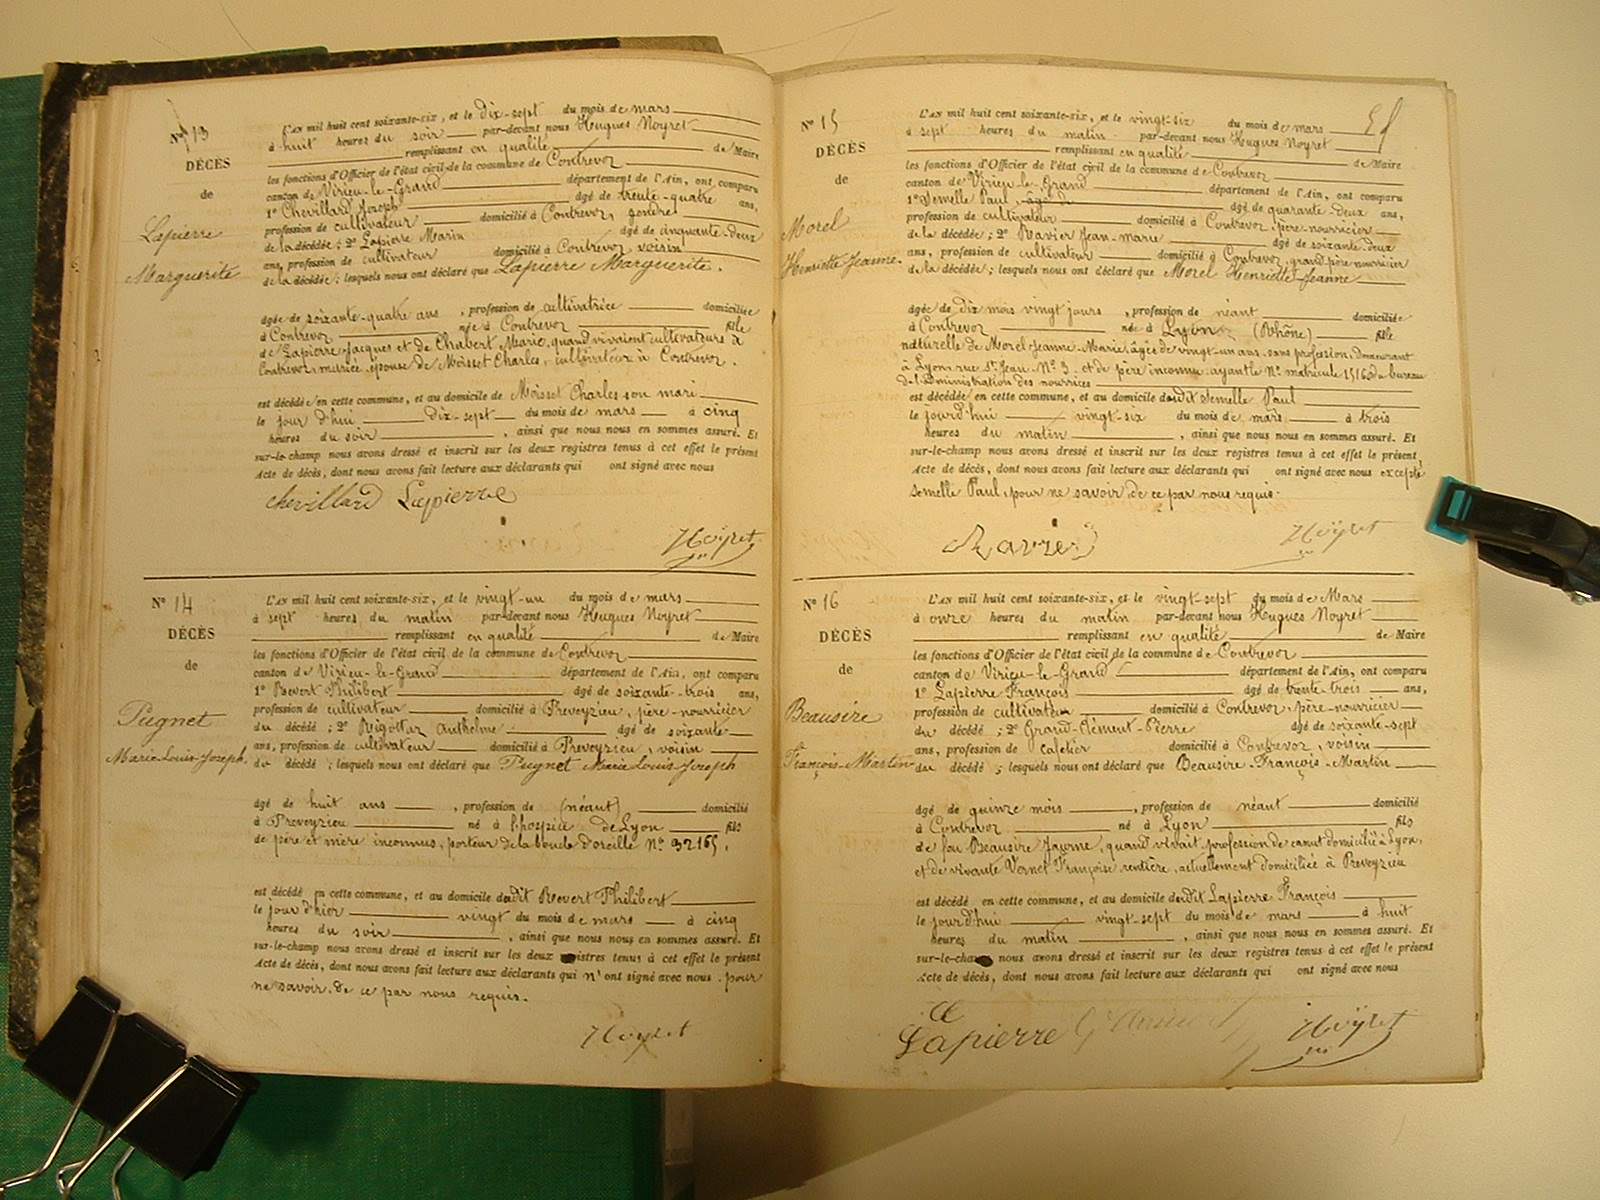 N° 13
DÉCÈS
de
Lapierre
Marguerite
L'AN mil huit cent soixante-six, et le dix-sept du mois de mars
à huit heures du soir par-devant nous Hugues Noyret
remplissant en qualité de Maire
les fonctions d'Officier de l'état civil de la commune de Contrevoz
canton de Virieu-le-Grand département de l'Ain, ont comparu
1° Chevillard Joseph âgé de trente-quatre ans,
profession de cultivateur domicilié à Contrevoz, gendre
de la décédée ; 2° Lapierre Marin âgé de cinquante-deux
ans, profession de cultivateur domicilié à Contrevoz, voisin
de la décédée ; lesquels nous ont déclaré que Lapierre Marguerite.
âgée de soixante-quatre ans, profession de cultivatrice domiciliée
à Contrevoz née à Contrevoz fille
de Lapierre Jacques et de Chabert Marie, quand vivaient cultivateurs à
Contrevoz, mariée, épouse de Moisset Charles, cultivateur à Contrevoz.
est décédée en cette commune, et au domicile de Moisset Charles son mari
le jour d'hui dix-sept du mois de mars à cinq
heures du soir, ainsi que nous nous en sommes assuré. Et
sur-le-champ nous avons dressé et inscrit sur les deux registres tenus à cet effet le présent
Acte de décès, dont nous avons fait lecture aux déclarants qui ont signé avec nous
chevillard Lapierre
Noyret
N° 14
DÉCÈS
de
Pugnet
Marie-Louis-Joseph.
L'AN mil huit cent soixante-six, et le vingt-un du mois de mars
à sept heures du matin par-devant nous Hugues Noyret
remplissant en qualité de Maire
les fonctions d'Officier de l'état civil de la commune de Contrevoz
canton de Virieu-le-Grand département de l'Ain, ont comparu
1° Revert Philibert âgé de soixante-trois ans,
profession de cultivateur domicilié à Preveyzieu, père-nourricier
du décédé ; 2° Rigottaz Anthelme âgé de soixante
ans, profession de cultivateur domicilié à Preveyzieu, voisin
du décédé ; lesquels nous ont déclaré que Pugnet Marie Louis-Joseph
âgé de huit ans, profession de (néant) domicilié
à Preveyzieu né à l'hospice de Lyon fils
de père et mère inconnus, porteur de la boucle d'oreille N° 32165.
est décédé en cette commune, et au domicile dudit Revert Philibert
le jour d'hier vingt du mois de mars à cinq
heures du soir, ainsi que nous nous en sommes assuré. Et
sur-le-champ nous avons dressé et inscrit sur les deux registres tenus à cet effet le présent
Acte de décès, dont nous avons fait lecture aux déclarants qui n'ont signé avec nous, pour
ne savoir, de ce par nous requis.
Noyret
N° 15
DÉCÈS
de
Morel
Henriette Jeanne.
L'AN mil huit cent soixante-six, et le vingt-six du mois de mars
à sept heures du matin par-devant nous Hugues Noyret
remplissant en qualité de Maire
les fonctions d'Officier de l'état civil de la commune de Contrevoz
canton de Virieu-le-Grand département de l'Ain, ont comparu
1° Semelle Paul, âgé de quarante-deux ans,
profession de cultivateur domicilié à Contrevoz, père-nourricier
de la décédée ; 2° Ravier Jean-marie âgé de soixante-deux
ans, profession de cultivateur domicilié à Contrevoz, grand-père nourricier
de la décédée ; lesquels nous ont déclaré que Morel Henriette-Jeanne
âgée de dix mois vingt jours, profession de néant domiciliée
à Contrevoz née à Lyon (Rhône) fille
naturelle de Morel Jeanne-Marie, âgée de vingt-un ans, sans profession, demeurant
à Lyon rue St Jean N° 3, et de père inconnu, ayant le N° matricule 1516 du bureau
de l'administration des nourrices
est décédée en cette commune, et au domicile dudit Semelle Paul
le jourd'hui vingt-six du mois de mars à trois
heures du matin, ainsi que nous nous en sommes assuré. Et
sur-le-champ nous avons dressé et inscrit sur les deux registres tenus à cet effet le présent
Acte de décès, dont nous avons fait lecture aux déclarants qui ont signé avec nous excepté
Semelle Paul, pour ne savoir, de ce par nous requis.
Ravier
Noyret
N° 16
DÉCÈS
de
Beausire
François-Martin
L'AN mil huit cent soixante-six, et le vingt-sept du mois de Mars
à onze heures du matin par-devant nous Hugues Noyret
remplissant en qualité de Maire
les fonctions d'Officier de l'état civil de la commune de Contrevoz
canton de Virieu-le-Grand département de l'Ain, ont comparu
1° Lapierre François âgé de trente-trois ans,
profession de cultivateur domicilié à Contrevoz, père-nourricier
du décédé ; 2° Grand-Clément-Pierre âgé de soixante-sept
ans, profession de cafetier domicilié à Contrevoz, voisin
du décédé ; lesquels nous ont déclaré que Beausire-François-Martin
âgé de quinze mois, profession de néant domicilié
à Contrevoz né à Lyon fils
de feu Beausire, quand vivait, profession de canut domicilié à Lyon,
et de vivante Vernet Françoise, rentière, actuellement domiciliée à Preveyzieu
est décédé en cette commune, et au domicile dudit Lapierre François
le jourd'hui vingt-sept du mois de mars à huit
heures du matin, ainsi que nous nous en sommes assuré. Et
sur-le-champ nous avons dressé et inscrit sur les deux registres tenus à cet effet le présent
Acte de décès, dont nous avons fait lecture aux déclarants qui ont signé avec nous
Lapierre
Noyret